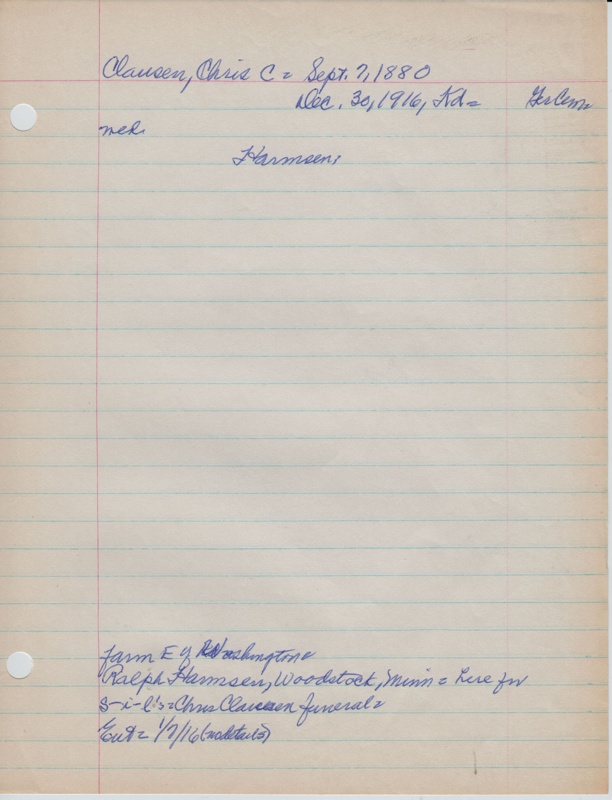 Clausen, Chris C = Sept. 7, 1880
Dec. 30, 1916, Kd = Ger Cem =
med.
Harmsen;
Farm E of Washington =
Ralph Harmsen, Woodstock, Minn = here for
s-i-l's = Chris Clausen funeral =
1/7/16 (no details)